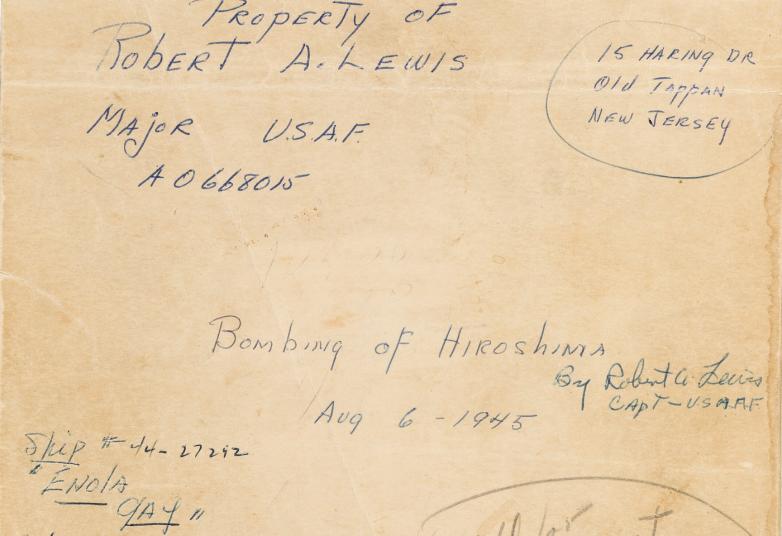 PROPERTY OF
ROBERT A. LEWIS
MAJOR U.S.A.F.
A0668015
15 HARING DR
Old TAPPAN
NEW JERSEY
BOMBING OF HIROSHIMA
By Robert A. Lewis
CAPT-USAAF
Aug 6-1945
Ship # 44-27292
"ENOLA
GAY"